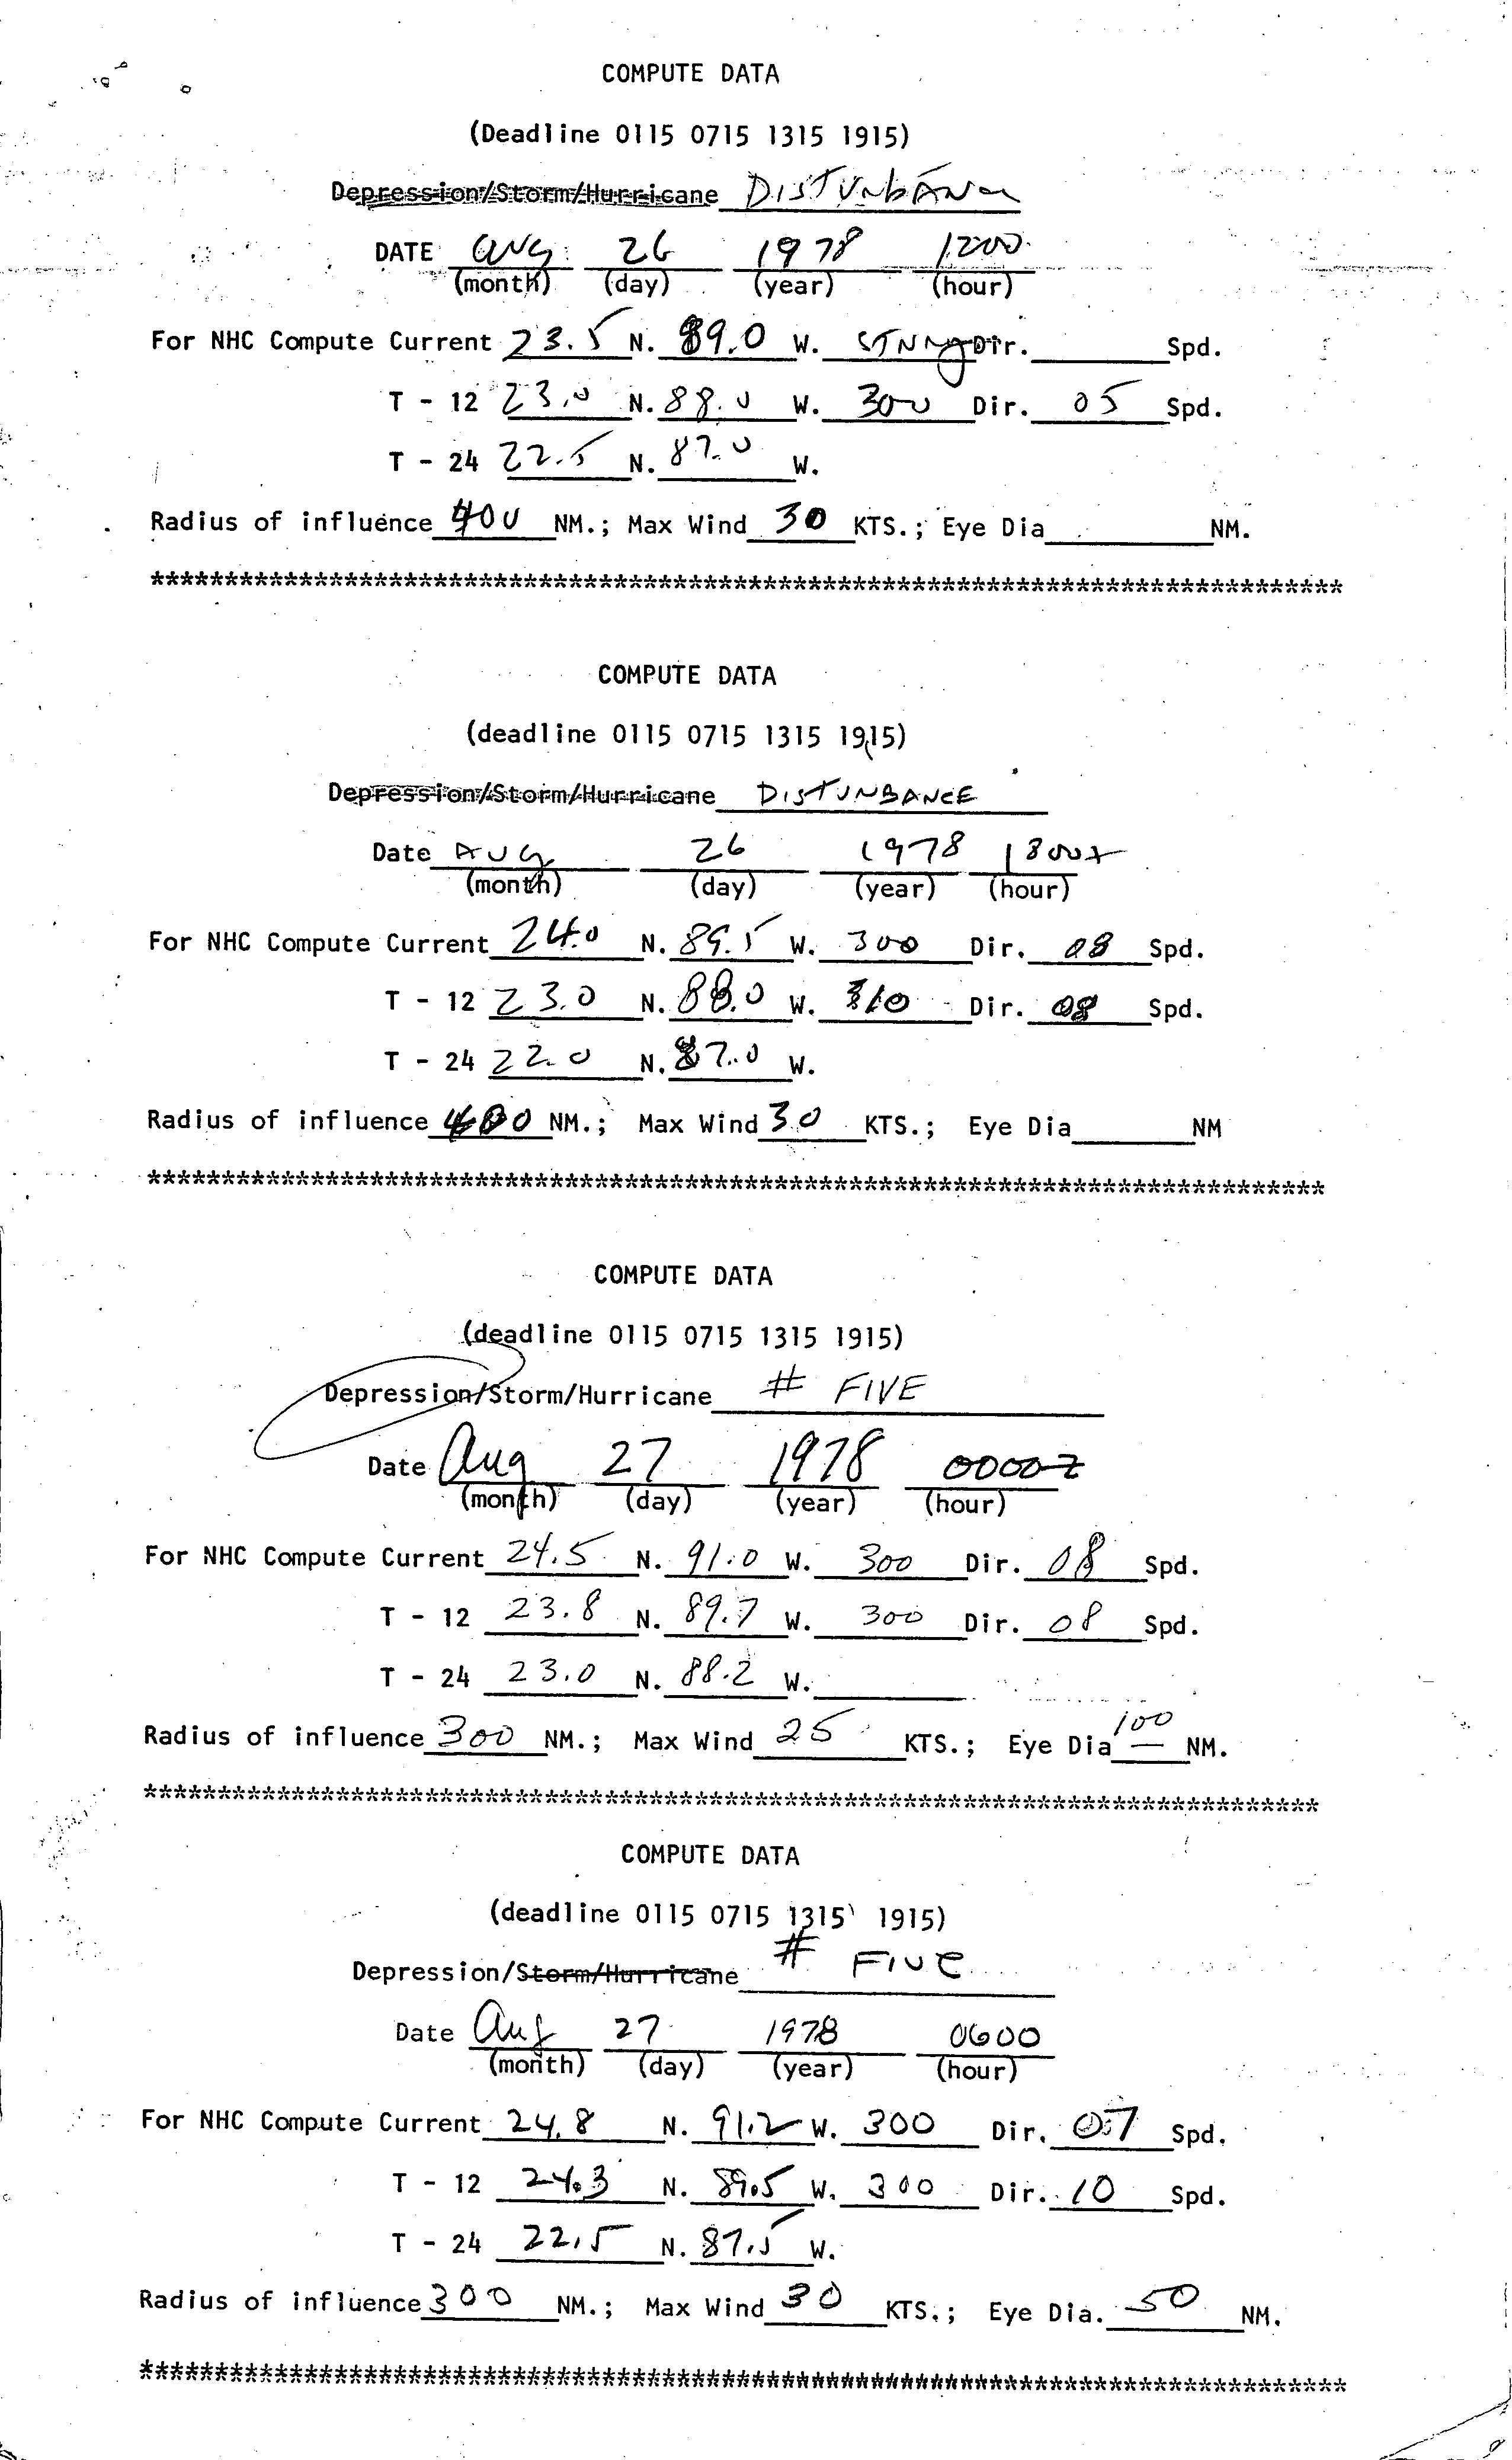 COMPUTE DATA
(Deadline 0115 0715 1315 1915)
Depression/Storm/Hurricane DISTURBANCE
DATE AUG 26 1978 1200
(month) (day) (year) (hour)
For NHC Compute Current 23.5 N. 89.0 W. STNRY Dir. Spd.
T - 12 23.0 N. 88.0 W. 300 Dir. 05 Spd.
T - 24 22.5 N. 87.0 W.
Radius of influence 400 NM.; Max Wind 30 KTS.; Eye Dia NM.
********************************************************************************
COMPUTE DATA
(deadline 0115 0715 1315 1915)
Depression/Storm/Hurricane DISTURBANCE
Date AUG 26 1978 1800Z
(month) (day) (year) (hour)
For NHC Compute Current 24.0 N. 89.5 W. 300 Dir. 08 Spd.
T - 12 23.0 N. 88.0 W. 310 Dir. 08 Spd.
T - 24 22.0 N. 87.0 W.
Radius of influence 400 NM.; Max Wind 30 KTS.; Eye Dia NM
********************************************************************************
COMPUTE DATA
(deadline 0115 0715 1315 1915)
Depression/Storm/Hurricane # FIVE
Date Aug 27 1978 0000Z
(month) (day) (year) (hour)
For NHC Compute Current 24.5 N. 91.0 W. 300 Dir. 08 Spd.
T - 12 23.8 N. 89.7 W. 300 Dir. 08 Spd.
T - 24 23.0 N. 88.2 W.
Radius of influence 300 NM.; Max Wind 25 KTS.; Eye Dia 100 NM.
********************************************************************************
COMPUTE DATA
(deadline 0115 0715 1315 1915)
Depression/Storm/Hurricane # FIVE
Date Aug 27 1978 0600
(month) (day) (year) (hour)
For NHC Compute Current 24.8 N. 91.2 W. 300 Dir. 07 Spd.
T - 12 24.3 N. 89.5 W. 300 Dir. 10 Spd.
T - 24 22.5 N. 87.5 W.
Radius of influence 300 NM.; Max Wind 30 KTS.; Eye Dia. 50 NM.
********************************************************************************